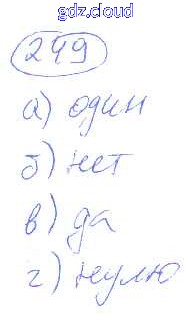 gdz.cloud
249
а) один
б) нет
в) да
г) нулю